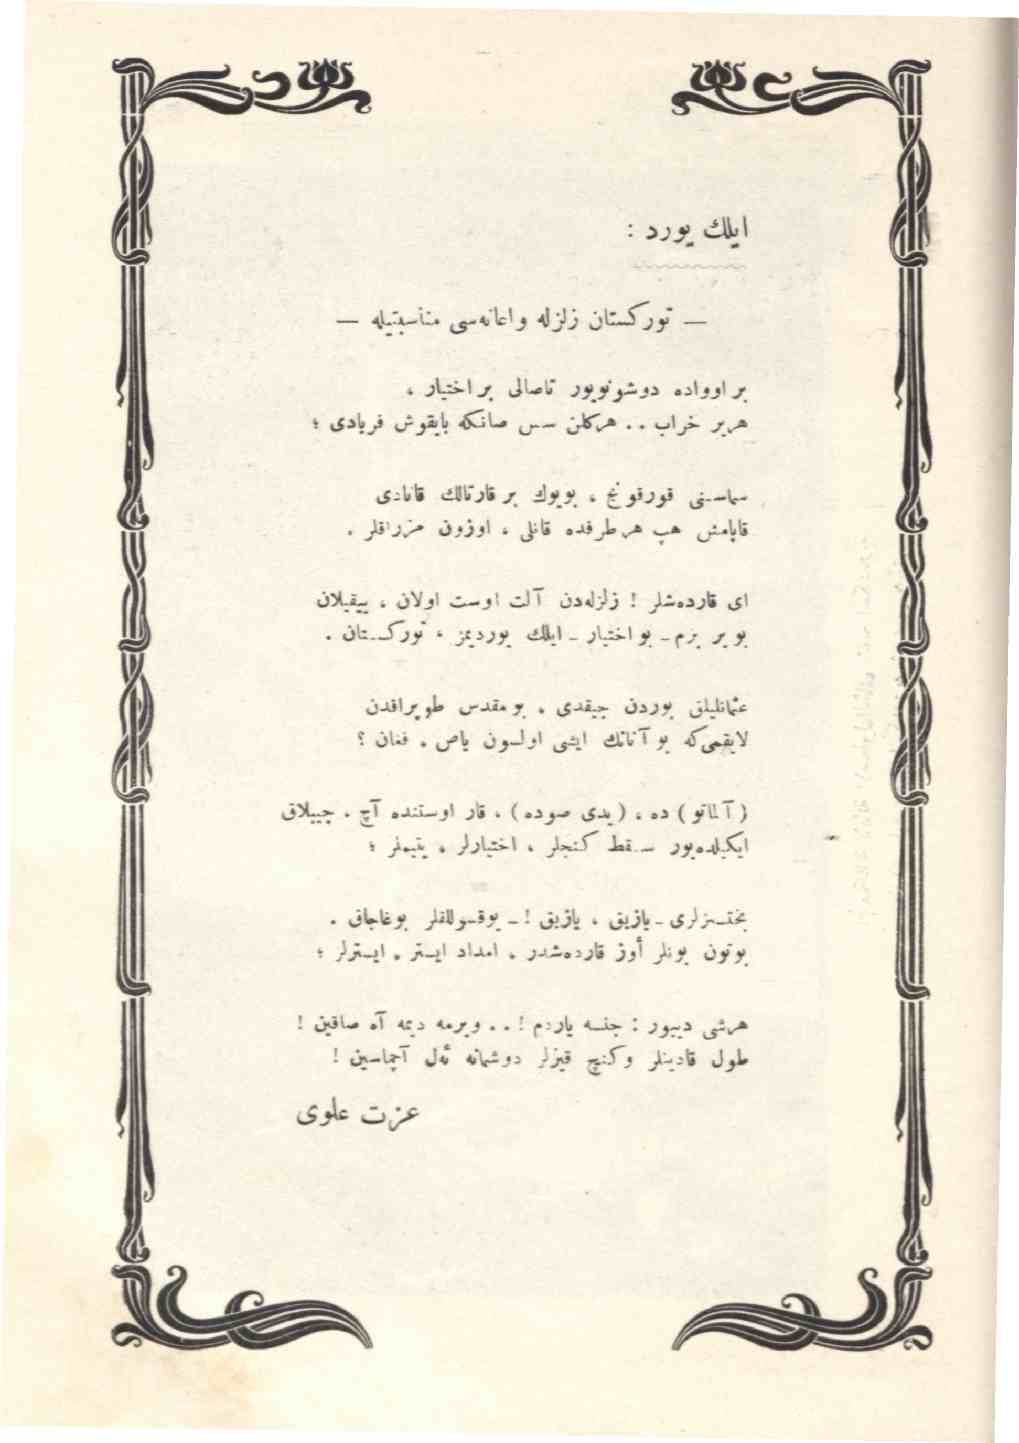 ایلك یورد :
— تورکستان زلزله و اعانه‌سی مناسبتیله —
بر اوواده دوشونویور تاصالی بر اختیار ،
هر بر خراب . . هرکلن سس صانکه بایقوش فریادی ؛
سماسنی قورقونج ، بویوك بر قارتالك قانادی
قاپامش هپ هر طرفده قانلی ، اوزون مزراقلر .
ای قارده‌شلر ! زلزله‌دن آلت اوست اولان ، ییقیلان
بو یر بزم ـ بو اختیار ـ ایلك یوردیمز ، تورکستان .
عثمانلیلق بوردن چیقدی ، بو مقدس طوپراقدن
لایقمی‌که بو آنانك ایشی اولسون یاص ، فغان ؟
( آلماتو ) ده ، ( یدی صوده ) ، قار اوستنده آچ ، چیپلاق
ایکیلده‌یور سقط کنجلر ، اختیارلر ، یتیملر ؛
بختسزلری ـ یازیق ، یازیق ! ـ یوقسوللقلر بوغاجاق .
بوتون بونلر أوز قارده‌شدر ، امداد ایستر ، ایسترلر ؛
هرشی دییور : جنسه یاردم ! . . ویرمه دیمه آه صاقین !
طول قادینلر وکنچ قیزلر دوشمانه ئه‌ل آچماسین !
عزت علوی